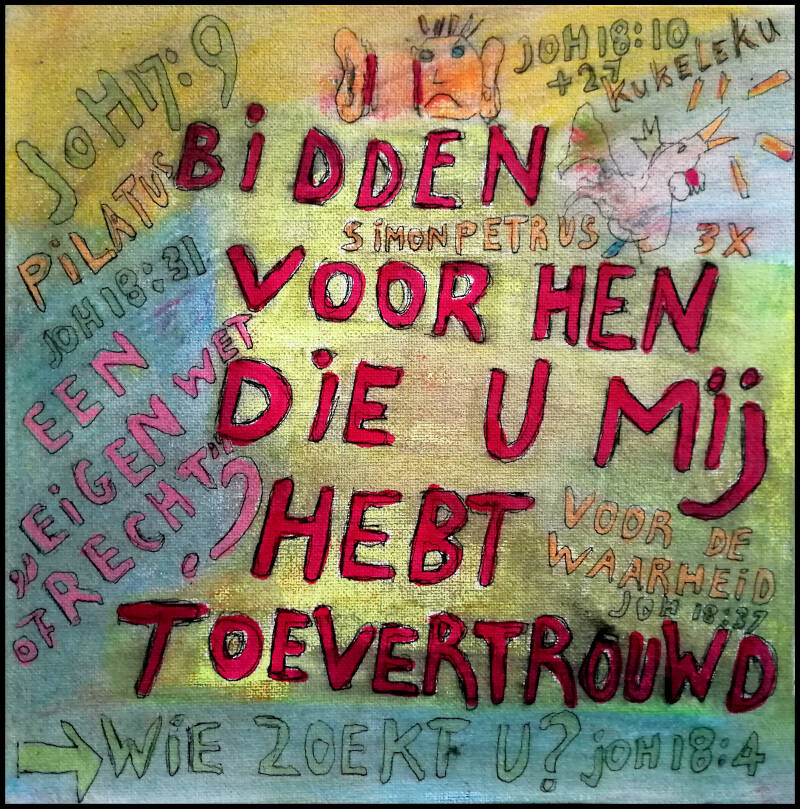 JOH 17:9
JOH 18:10
+ 27
KUKELEKU
BIDDEN
SIMON PETRUS
3X
PILATUS
JOH 18:31
VOOR HEN
DIE U MIJ
HEBT
TOEVERTROUWD
EEN
"EIGEN WET
OF RECHT"?
VOOR DE
WAARHEID
JOH 18:37
WIE ZOEKT U? JOH 18:4